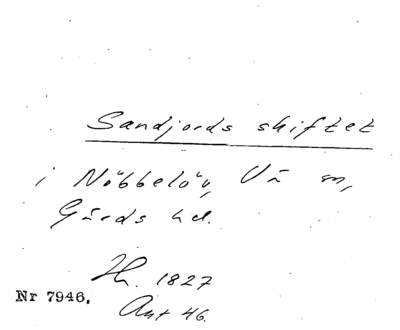 Sandjords skiftet
i Nöbbelöv, Vä sn,
Gärds hd.
Hh. 1827
Nr 7946.
Ant 46.